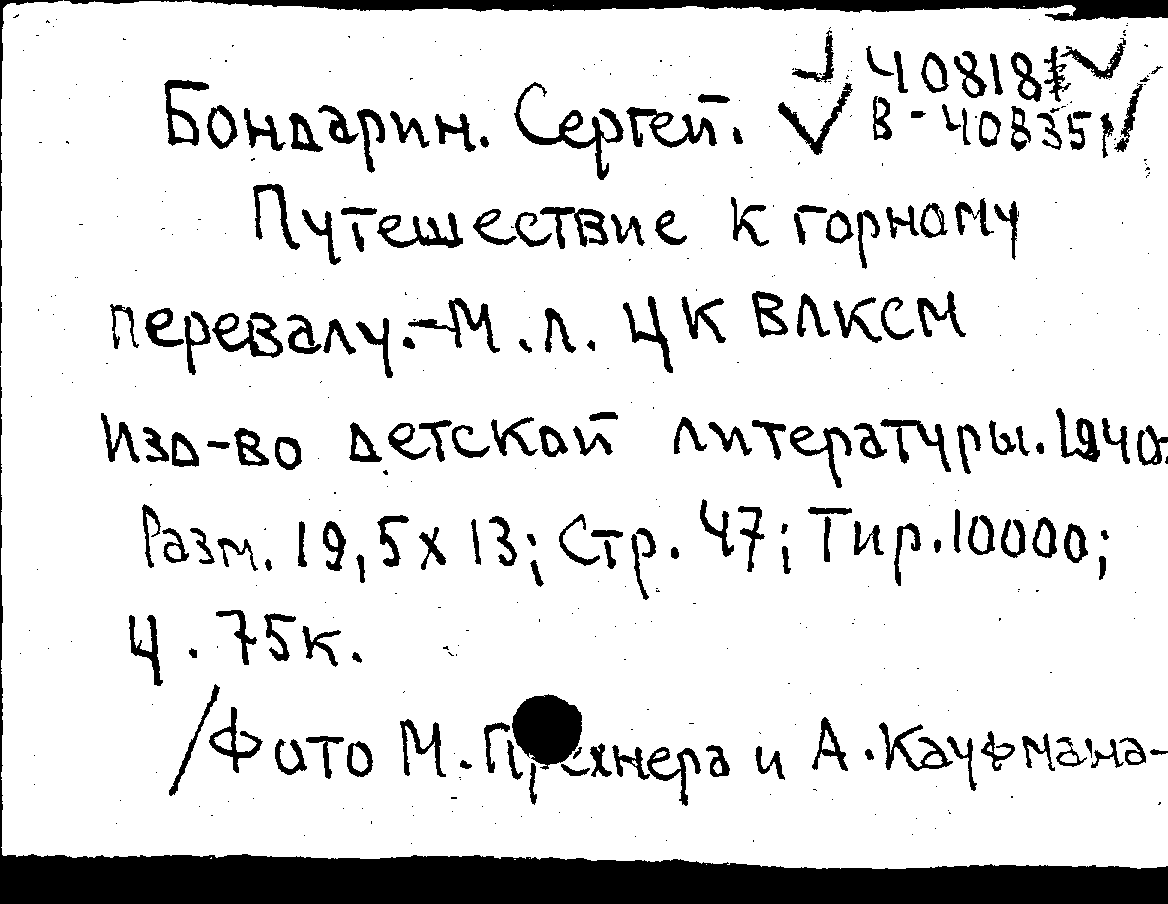 40818
Бондарин. Сергей. В-40835
Путешествие к горному
перевалу.-М.Л. ЦК ВЛКСМ
Изд-во детской литературы.1940.
Разм. 19,5х13; Стр. 47; Тир.10000;
Ц. 75к.
/Фото М. и А.Кауфмана-